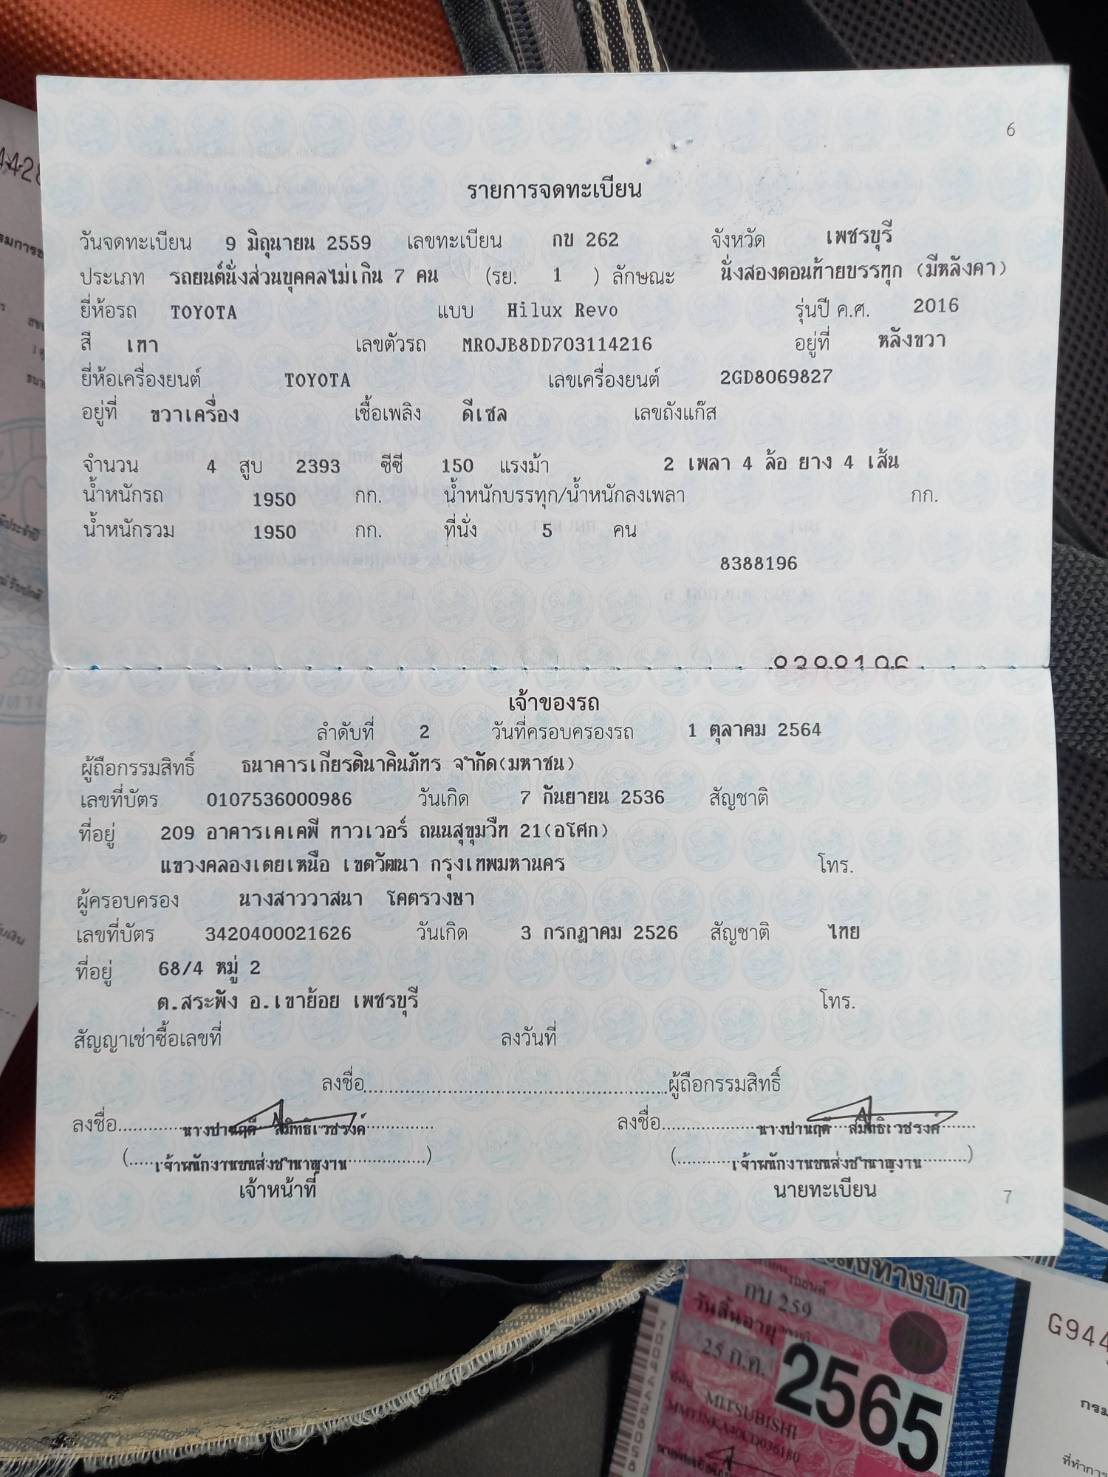 6
รายการจดทะเบียน
วันจดทะเบียน 9 มิถุนายน 2559 เลขทะเบียน กข 262 จังหวัด เพชรบุรี
ประเภท รถยนต์นั่งส่วนบุคคลไม่เกิน 7 คน (รย. 1 ) ลักษณะ นั่งสองตอนท้ายบรรทุก (มีหลังคา)
ยี่ห้อรถ TOYOTA แบบ Hilux Revo รุ่นปี ค.ศ. 2016
สี เทา เลขตัวรถ MR0JB8DD703114216 อยู่ที่ หลังขวา
ยี่ห้อเครื่องยนต์ TOYOTA เลขเครื่องยนต์ 2GD8069827
อยู่ที่ ขวาเครื่อง เชื้อเพลิง ดีเซล เลขถังแก๊ส
จำนวน 4 สูบ 2393 ซีซี 150 แรงม้า 2 เพลา 4 ล้อ ยาง 4 เส้น
น้ำหนักรถ 1950 กก. น้ำหนักบรรทุก/น้ำหนักลงเพลา กก.
น้ำหนักรวม 1950 กก. ที่นั่ง 5 คน
8388196
8388196
เจ้าของรถ
ลำดับที่ 2 วันที่ครอบครองรถ 1 ตุลาคม 2564
ผู้ถือกรรมสิทธิ์ ธนาคารเกียรตินาคินภัทร จำกัด(มหาชน)
เลขที่บัตร 0107536000986 วันเกิด 7 กันยายน 2536 สัญชาติ
ที่อยู่ 209 อาคารเคเคพี ทาวเวอร์ ถนนสุขุมวิท 21(อโศก)
แขวงคลองเตยเหนือ เขตวัฒนา กรุงเทพมหานคร โทร.
ผู้ครอบครอง นางสาววาสนา โคตรวงษา
เลขที่บัตร 3420400021626 วันเกิด 3 กรกฎาคม 2526 สัญชาติ ไทย
ที่อยู่ 68/4 หมู่ 2
ต.สระพัง อ.เขาย้อย เพชรบุรี โทร.
สัญญาเช่าซื้อเลขที่ ลงวันที่
ลงชื่อ............ผู้ถือกรรมสิทธิ์
ลงชื่อ.....นางปานฤดี สมิทธิเวชรงค์..... ลงชื่อ.....นางปานฤดี สมิทธิเวชรงค์.....
(.....เจ้าพนักงานขนส่งชำนาญงาน.....) (.....เจ้าพนักงานขนส่งชำนาญงาน.....)
เจ้าหน้าที่ นายทะเบียน
7
กบ 259
วันสิ้นอายุ
25 ก.ค. 2565
MITSUBISHI
G944